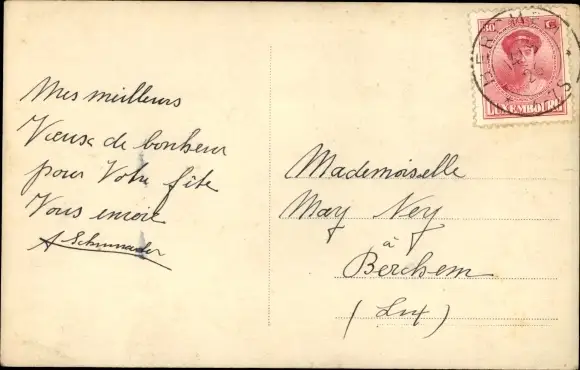 Mes meilleurs
Vœux de bonheur
pour Votre fête
Vous envoie
A Schumacher
Mademoiselle
May Ney
à
Berchem
(Lux)
LUXEMBOURG